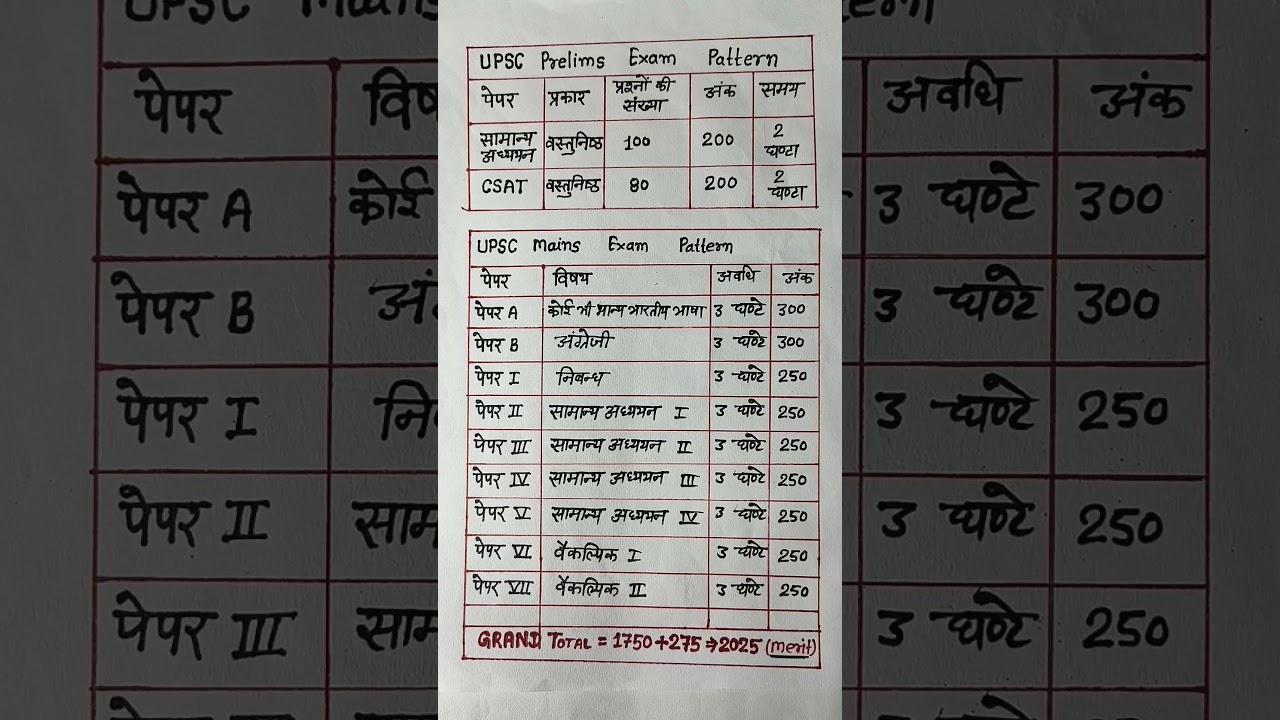 UPSC Prelims Exam Pattern
पेपर प्रकार प्रश्नों की संख्या अंक समय
सामान्य अध्ययन वस्तुनिष्ठ 100 200 2 घण्टा
CSAT वस्तुनिष्ठ 80 200 2 घण्टा
UPSC Mains Exam Pattern
पेपर विषय अवधि अंक
पेपर A कोई भी मान्य भारतीय भाषा 3 घण्टे 300
पेपर B अंग्रेजी 3 घण्टे 300
पेपर I निबन्ध 3 घण्टे 250
पेपर II सामान्य अध्ययन I 3 घण्टे 250
पेपर III सामान्य अध्ययन II 3 घण्टे 250
पेपर IV सामान्य अध्ययन III 3 घण्टे 250
पेपर V सामान्य अध्ययन IV 3 घण्टे 250
पेपर VI वैकल्पिक I 3 घण्टे 250
पेपर VII वैकल्पिक II 3 घण्टे 250
GRAND TOTAL = 1750 + 275 → 2025 (merit)